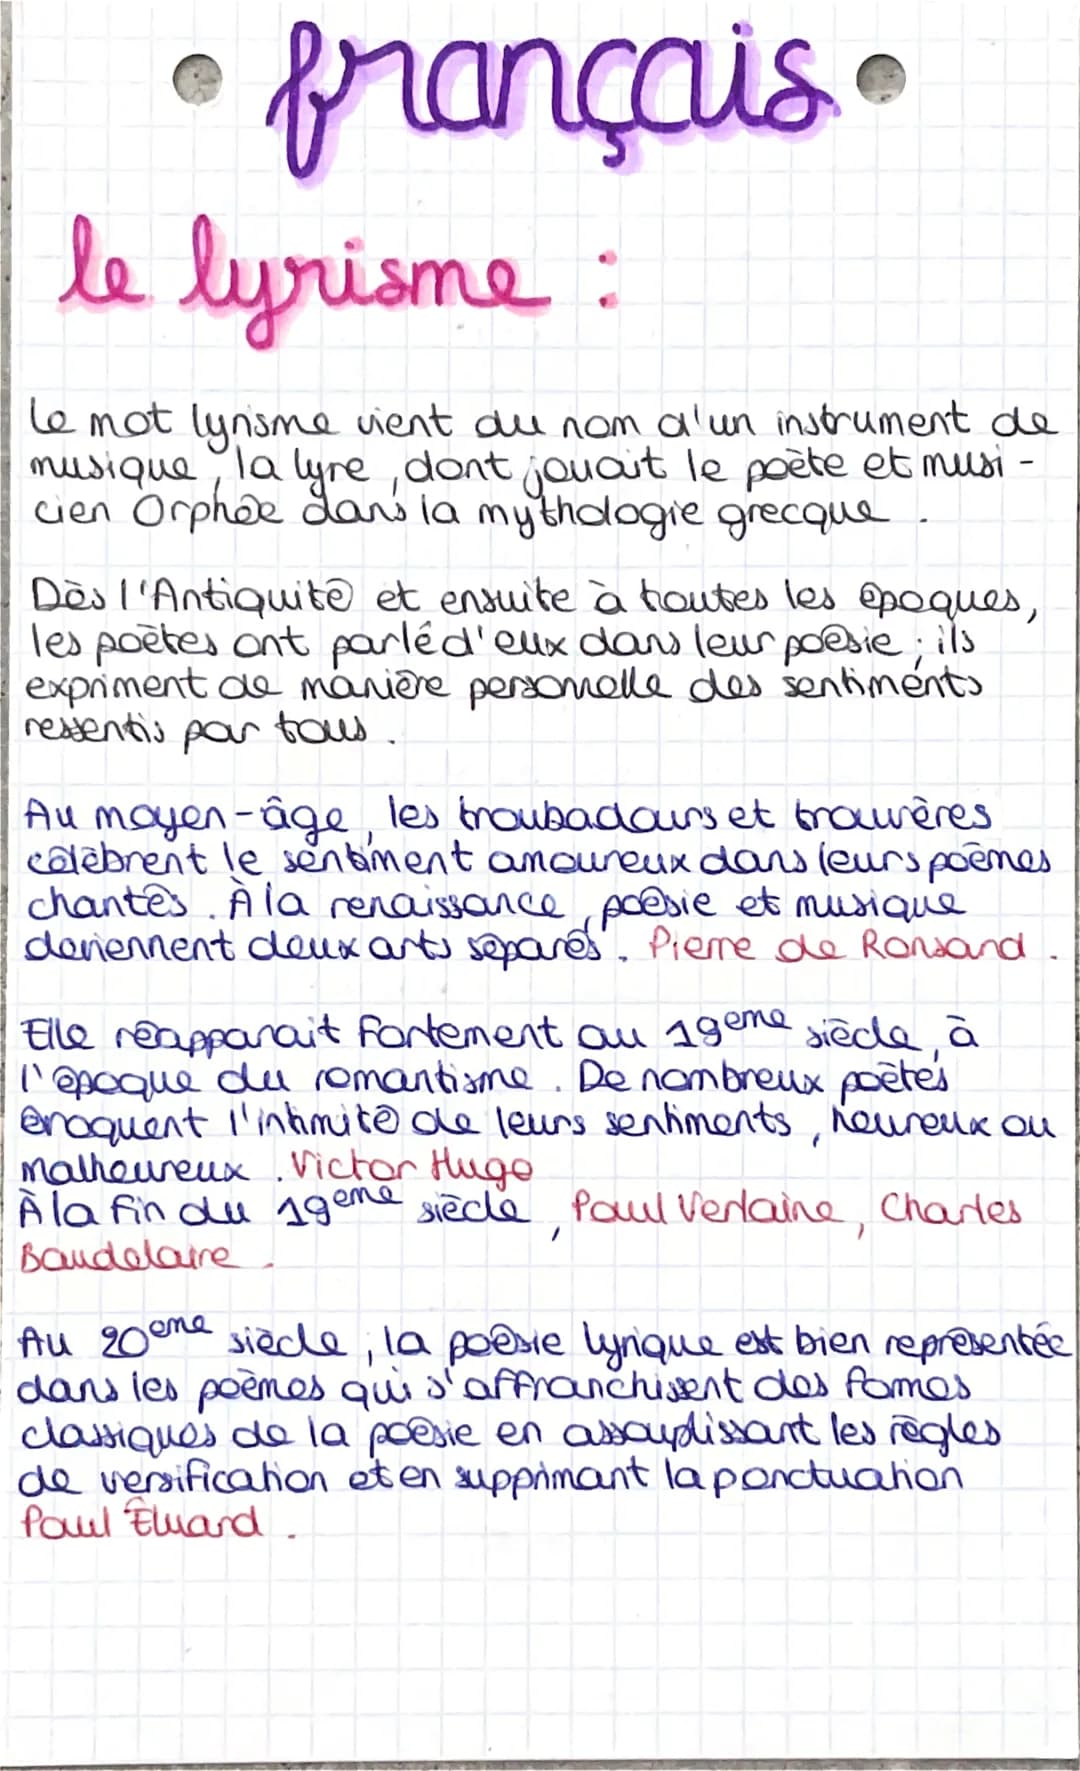 français
le lyrisme :
Le mot lyrisme vient du nom d'un instrument de
musique, la lyre, dont jouait le poète et musi-
cien Orphée dans la mythologie grecque.
Dès l'Antiquité et ensuite à toutes les époques,
les poètes ont parlé d'eux dans leur poésie ; ils
expriment de manière personnelle des sentiments
ressentis par tous.
Au moyen-âge, les troubadours et trouvères
célèbrent le sentiment amoureux dans leurs poèmes
chantés. À la renaissance, poésie et musique
deviennent deux arts séparés. Pierre de Ronsard.
Elle réapparait fortement au 19eme siècle, à
l'époque du romantisme. De nombreux poètes
évoquent l'intimité de leurs sentiments, heureux ou
malheureux. Victor Hugo
À la fin du 19eme siècle, Paul Verlaine, Charles
Baudelaire.
Au 20eme siècle, la poésie lyrique est bien représentée
dans les poèmes qui s'affranchissent des formes
classiques de la poésie en assouplissant les règles
de versification et en supprimant la ponctuation
Paul Éluard.